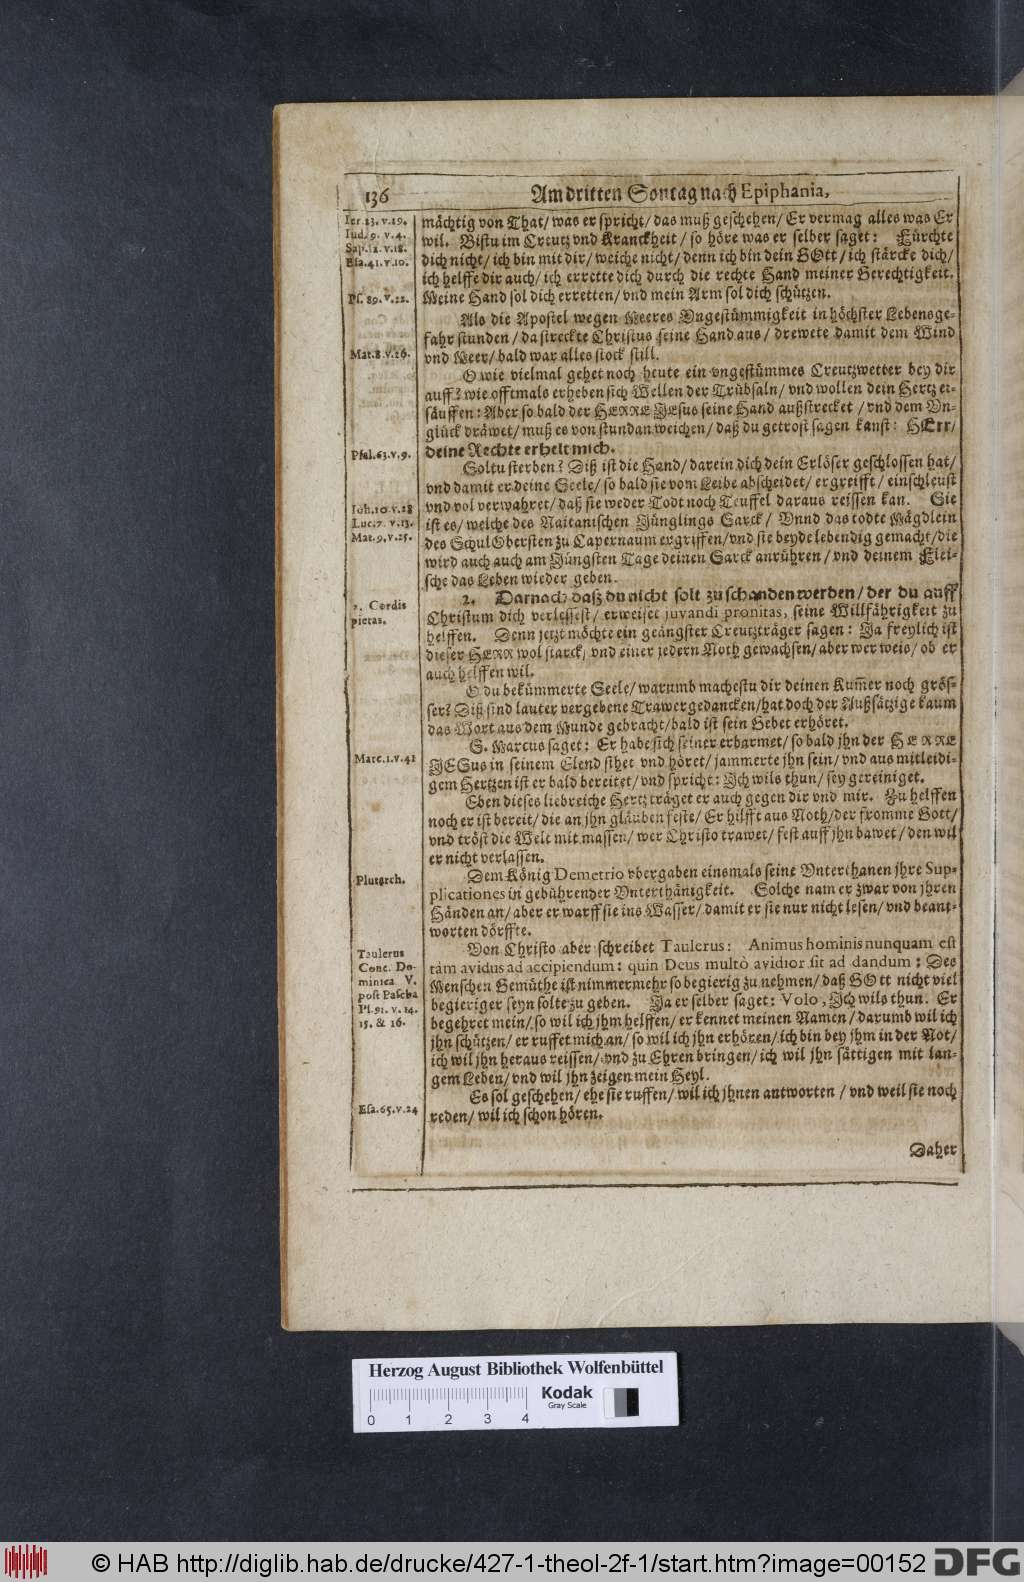 136
Am dritten Sontag nach Epiphania,
Ier. 23. v. 19.
Iud. 9. v. 4.
Sap. 12. v. 18.
Esa. 41. v. 10.
mächtig von That/ was er spricht/ das muß geschehen/ Er vermag alles was Er
wil. Bistu im Creutz vnd Kranckheit/ so höre was er selber saget: Fürchte
dich nicht/ ich bin mit dir/ weiche nicht/ denn ich bin dein GOtt/ ich stärcke dich/
ich helffe dir auch/ ich errette dich durch die rechte Hand meiner Gerechtigkeit.
Ps. 89. v. 22.
Meine Hand sol dich erretten/ vnd mein Arm sol dich schützen.
Als die Apostel wegen Meeres Vngestümmigkeit in höchster Lebensge-
fahr stunden/ da streckte Christus seine Hand aus/ drewete damit dem Wind
Mat. 8. v. 26.
vnd Meer/ bald war alles stock still.
O wie vielmal gehet noch heute ein vngestümmes Creutzwetter bey dir
auff? wie offtmals erheben sich Wellen der Trübsaln/ vnd wollen dein Hertz er-
säuffen: Aber so bald der HERRE JEsus seine Hand außstrecket/ vnd dem Vn-
glück dräwet/ muß es von stundan weichen/ daß du getrost sagen kanst: HErr/
Psal. 63. v. 9.
deine Rechte erhelt mich.
Soltu sterben? Diß ist die Hand/ darein dich dein Erlöser geschlossen hat/
vnd damit er deine Seele/ so bald sie vom Leibe abscheidet/ ergreifft/ einschleust
Ioh. 10. v. 28
vnd vol verwahret/ daß sie weder Todt noch Teuffel daraus reissen kan. Sie
Luc. 7. v. 13.
ist es/ welche des Naitanischen Jünglings Sarck/ Vnnd das todte Mägdlein
Mat. 9. v. 25.
des SchulObersten zu Capernaum ergriffen/ vnd sie beyde lebendig gemacht/ die
wird auch auch am Jüngsten Tage deinen Sarck anrühren/ vnd deinem Flei-
sche das Leben wieder geben.
2. Cordis
pietas.
2. Darnach daß du nicht solt zu schanden werden/ der du auff
Christum dich verlessest/ erweiset juvandi pronitas, seine Willfährigkeit zu
helffen. Denn jetzt möchte ein geängster Creutzträger sagen: Ja freylich ist
dieser HERR wol starck/ vnd einer jedern Noth gewachsen/ aber wer weis/ ob er
auch helffen wil.
O du bekümmerte Seele/ warumb machestu dir deinen Kum̃er noch grös-
ser? Diß sind lauter vergebene Trawergedancken/ hat doch der Außsätzige kaum
das Wort aus dem Munde gebracht/ bald ist sein Gebet erhöret.
S. Marcus saget: Er habe sich seiner erbarmet/ so bald jhn der HERRE
Marc. 1. v. 41
JESus in seinem Elend sihet vnd höret/ jammerte jhn sein/ vnd aus mitleidi-
gem Hertzen ist er bald bereitet/ vnd spricht: Ich wils thun/ sey gereiniget.
Eben dieses liebreiche Hertz träget er auch gegen dir vnd mir. Zu helffen
noch er ist bereit/ die an jhn gläuben feste/ Er hilfft aus Noth/ der fromme Gott/
vnd tröst die Welt mit massen/ wer Christo trawet/ fest auff jhn bawet/ den wil
er nicht verlassen.
Plutarch.
Dem König Demetrio vbergaben einsmals seine Vnterthanen jhre Sup-
plicationes in gebührender Vnterthänigkeit. Solche nam er zwar von jhren
Händen an/ aber er warff sie ins Wasser/ damit er sie nur nicht lesen/ vnd beant-
worten dörffte.
Taulerus
Conc. Do-
minica V.
post Pascha
Ps. 91. v. 14.
15. & 16.
Von Christo aber schreibet Taulerus: Animus hominis nunquam est
tàm avidus ad accipiendum: quin Deus multò avidior sit ad dandum: Des
Menschen Gemüthe ist nimmermehr so begierig zu nehmen/ daß GOtt nicht viel
begieriger seyn solte zu geben. Ja er selber saget: Volo, Ich wils thun. Er
begehret mein/ so wil ich jhm helffen/ er kennet meinen Namen/ darumb wil ich
jhn schützen/ er ruffet mich an/ so wil ich jhn erhören/ ich bin bey jhm in der Not/
ich wil jhn heraus reissen/ vnd zu Ehren bringen/ ich wil jhn sättigen mit lan-
gem Leben/ vnd wil jhn zeigen mein Heyl.
Es sol geschehen/ ehe sie ruffen/ wil ich jhnen antworten/ vnd weil sie noch
Esa. 65. v. 24
reden/ wil ich schon hören.
Daher
Herzog August Bibliothek Wolfenbüttel
0 1 2 3 4
Kodak
Gray Scale
© HAB http://diglib.hab.de/drucke/427-1-theol-2f-1/start.htm?image=00152
DFG